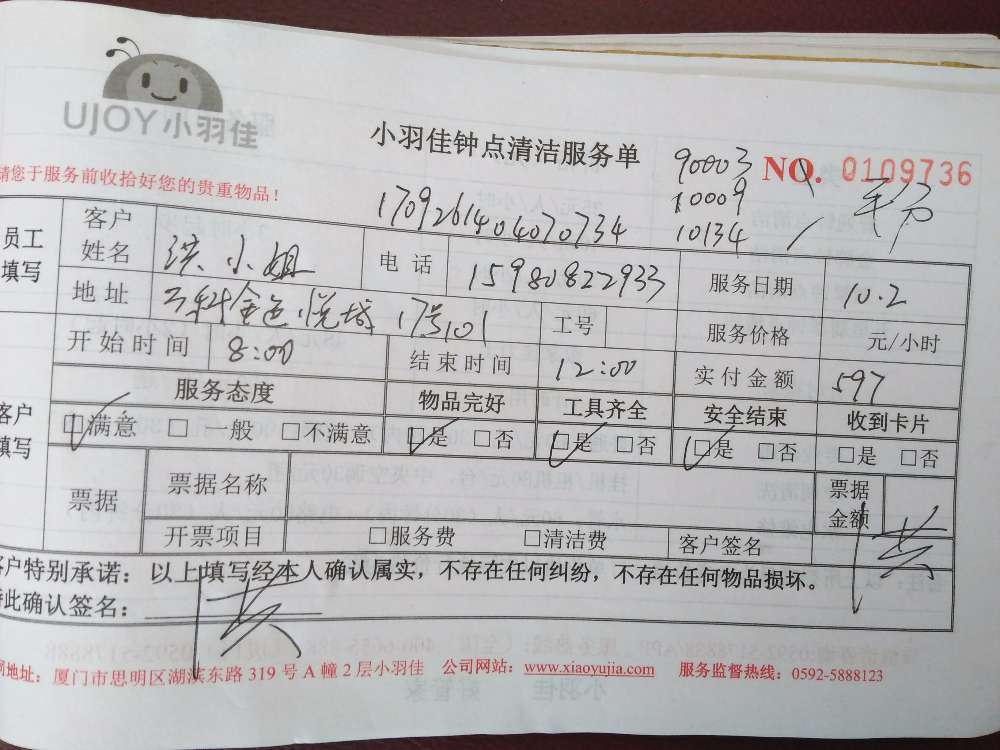 UJOY小羽佳
小羽佳钟点清洁服务单
90003
NO. 0109736
请您于服务前收拾好您的贵重物品!
10009
1709261404070734
10134
员工填写
客户姓名 洪小姐 电话 15980822933 服务日期 10.2
地址 万科金色悦城 17号101 工号 服务价格 元/小时
开始时间 8:00 结束时间 12:00 实付金额 597
客户填写
服务态度 物品完好 工具齐全 安全结束 收到卡片
☑满意 □一般 □不满意 ☑是 □否 ☑是 □否 ☑是 □否 □是 □否
票据 票据名称 票据金额
开票项目 □服务费 □清洁费 客户签名 洪
客户特别承诺:以上填写经本人确认属实,不存在任何纠纷,不存在任何物品损坏。
特此确认签名: 洪
地址:厦门市思明区湖滨东路 319 号 A 幢 2 层小羽佳 公司网站:www.xiaoyujia.com 服务监督热线:0592-5888123